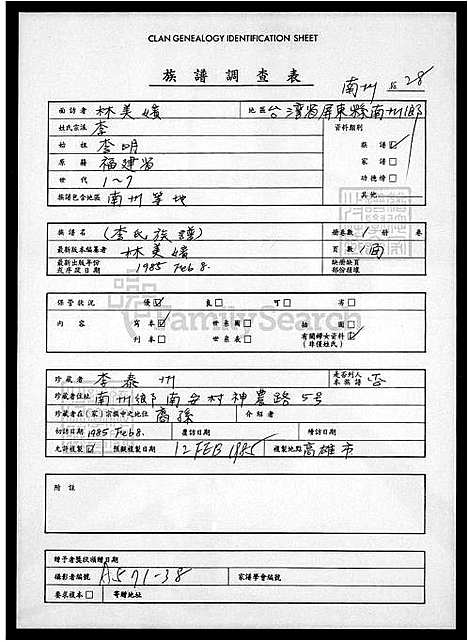 CLAN GENEALOGY IDENTIFICATION SHEET
族譜調查表
南州 28
面訪者 林美媛 地區 台灣省屏東縣南州鄉
姓氏宗派 李 資料類別
始祖 李明 族譜☑
原籍 福建省 家譜□
世代 1~7 功德榜□
族譜包含地區 南州等地 其他
族譜名 (李氏族譜) 冊卷數 1 冊 卷
最新版本編纂者 林美媛 頁數 面
最新出版年份 或序跋日期 1985 Feb 8. 缺冊缺頁 部份種樣
保管狀況 優☑ 良□ 可□ 劣□
內容 寫本☑ 世系圖□ 插圖□
刊本□ 世系表□ 有關婦女資料☑ (非僅姓氏)
FamilySearch
珍藏者 李泰州 是否列入本族譜 否
珍藏者住址 南州鄉南安村神農路5号
珍藏者在(家)宗族中之地位 裔孫 介紹者
初訪日期 1985 Feb 8. 覆訪日期 續訪日期
允許複製☑ 預擬複製日期 12 FEB 1985 複製地點 高雄市
附註
贈予者獎狀頒贈日期
攝影者編號 A571-38 家譜學會編號
要求複本□ 寄贈地址